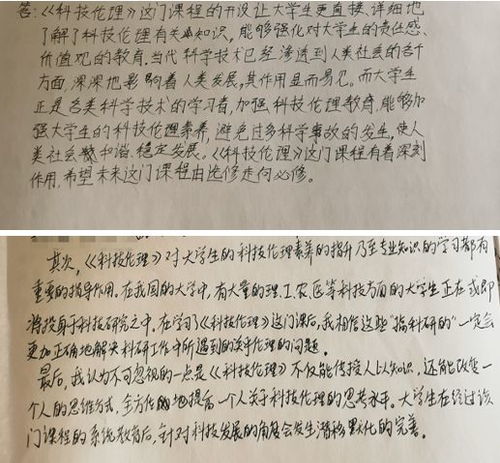 答:《科技伦理》这门课程的开设让大学生更直接、详细地
了解了科技伦理有关知识，能够强化对大学生的责任感、
价值观的教育。当代科学技术已经渗透到人类社会的各个
方面，深深地影响着人类发展，其作用显而易见。而大学生
正是各类科学技术的学习者，加强科技伦理教育，能够加
强大学生的科技伦理素养，避免过多科学事故的发生，使人
类社会和谐、稳定发展。《科技伦理》这门课程有着深刻
作用，希望未来这门课程由选修走向必修。
其次，《科技伦理》对大学生的科技伦理素养的提升乃至专业知识的学习都有
重要的指导作用。在我国的大学中，有大量的理、工、农、医等科技方面的大学生正在或即
将投身于科技研究之中，在学习了《科技伦理》这门课后，我相信这些"搞科研的"一定会
更加正确地解决科研工作中所遇到的关乎伦理的问题。
最后，我认为不可忽视的一点是《科技伦理》不仅能传授人以知识，还能改变一
个人的思维方式，全方位的地提高一个人关于科技伦理的思考水平。大学生在经过该
门课程的系统教育后，针对科技发展的角度会发生潜移默化的完善。